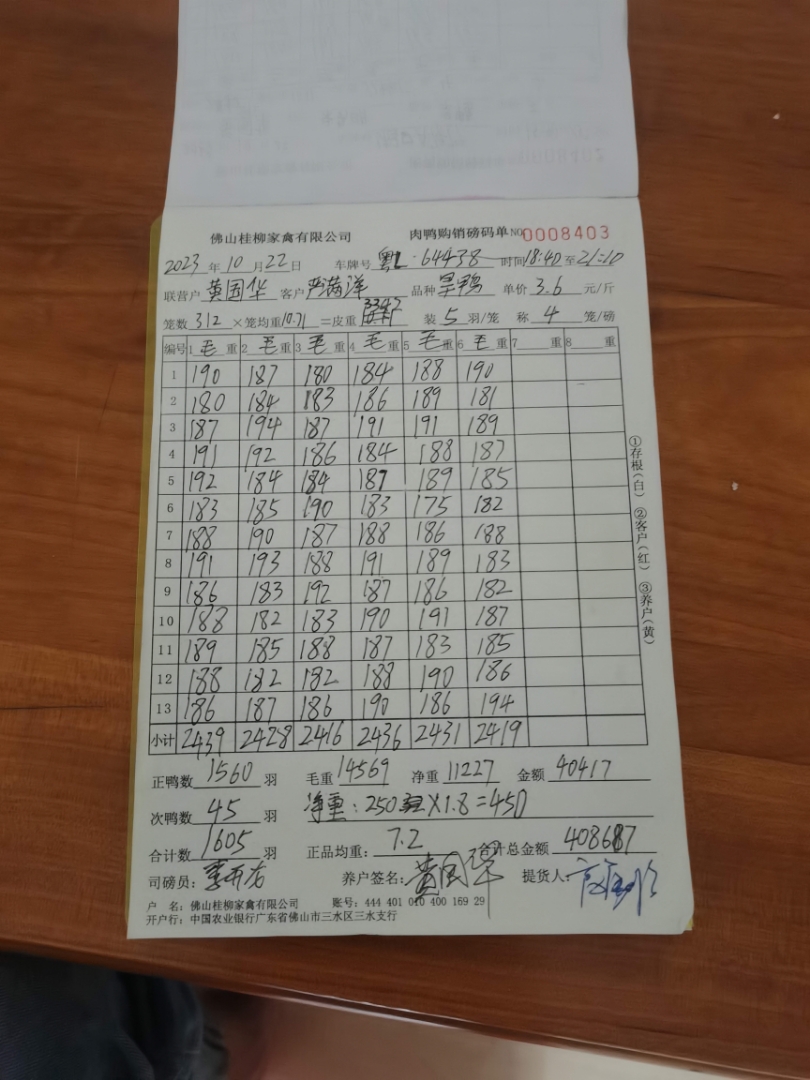 佛山桂柳家禽有限公司 肉鸭购销磅码单 NO 0008403
2023年10月22日 车牌号 粤L·64438 时间18:40至21:10
联营户 黄国华 客户 严满洋 品种 旱鸭 单价 3.6 元/斤
笼数 312 ×笼均重10.71=皮重 3342 装 5 羽/笼 称 4 笼/磅
编号 1 毛重 2 毛重 3 毛重 4 毛重 5 毛重 6 毛重 7 重 8 重
1 190 187 180 184 188 190
2 180 184 183 186 189 181
3 187 194 187 191 191 189
4 191 192 186 184 188 187
5 192 184 184 187 189 185
6 183 185 190 183 175 182
7 188 190 187 188 186 188
8 191 193 188 191 189 183
9 186 183 192 187 186 182
10 188 182 183 190 191 187
11 189 185 188 187 183 185
12 188 182 182 188 190 186
13 186 187 186 190 186 194
小计 2439 2428 2416 2436 2431 2419
正鸭数 1560 羽 毛重 14569 净重 11227 金额 40417
次鸭数 45 羽 净重:250 ×1.8=450
合计数 1605 羽 正品均重: 7.2 合计总金额 40867
司磅员: 养户签名: 黄国华 提货人:
户 名: 佛山桂柳家禽有限公司 账号: 444 401 010 400 169 29
开户行: 中国农业银行广东省佛山市三水区三水支行
①存根(白) ②客户(红) ③养户(黄)